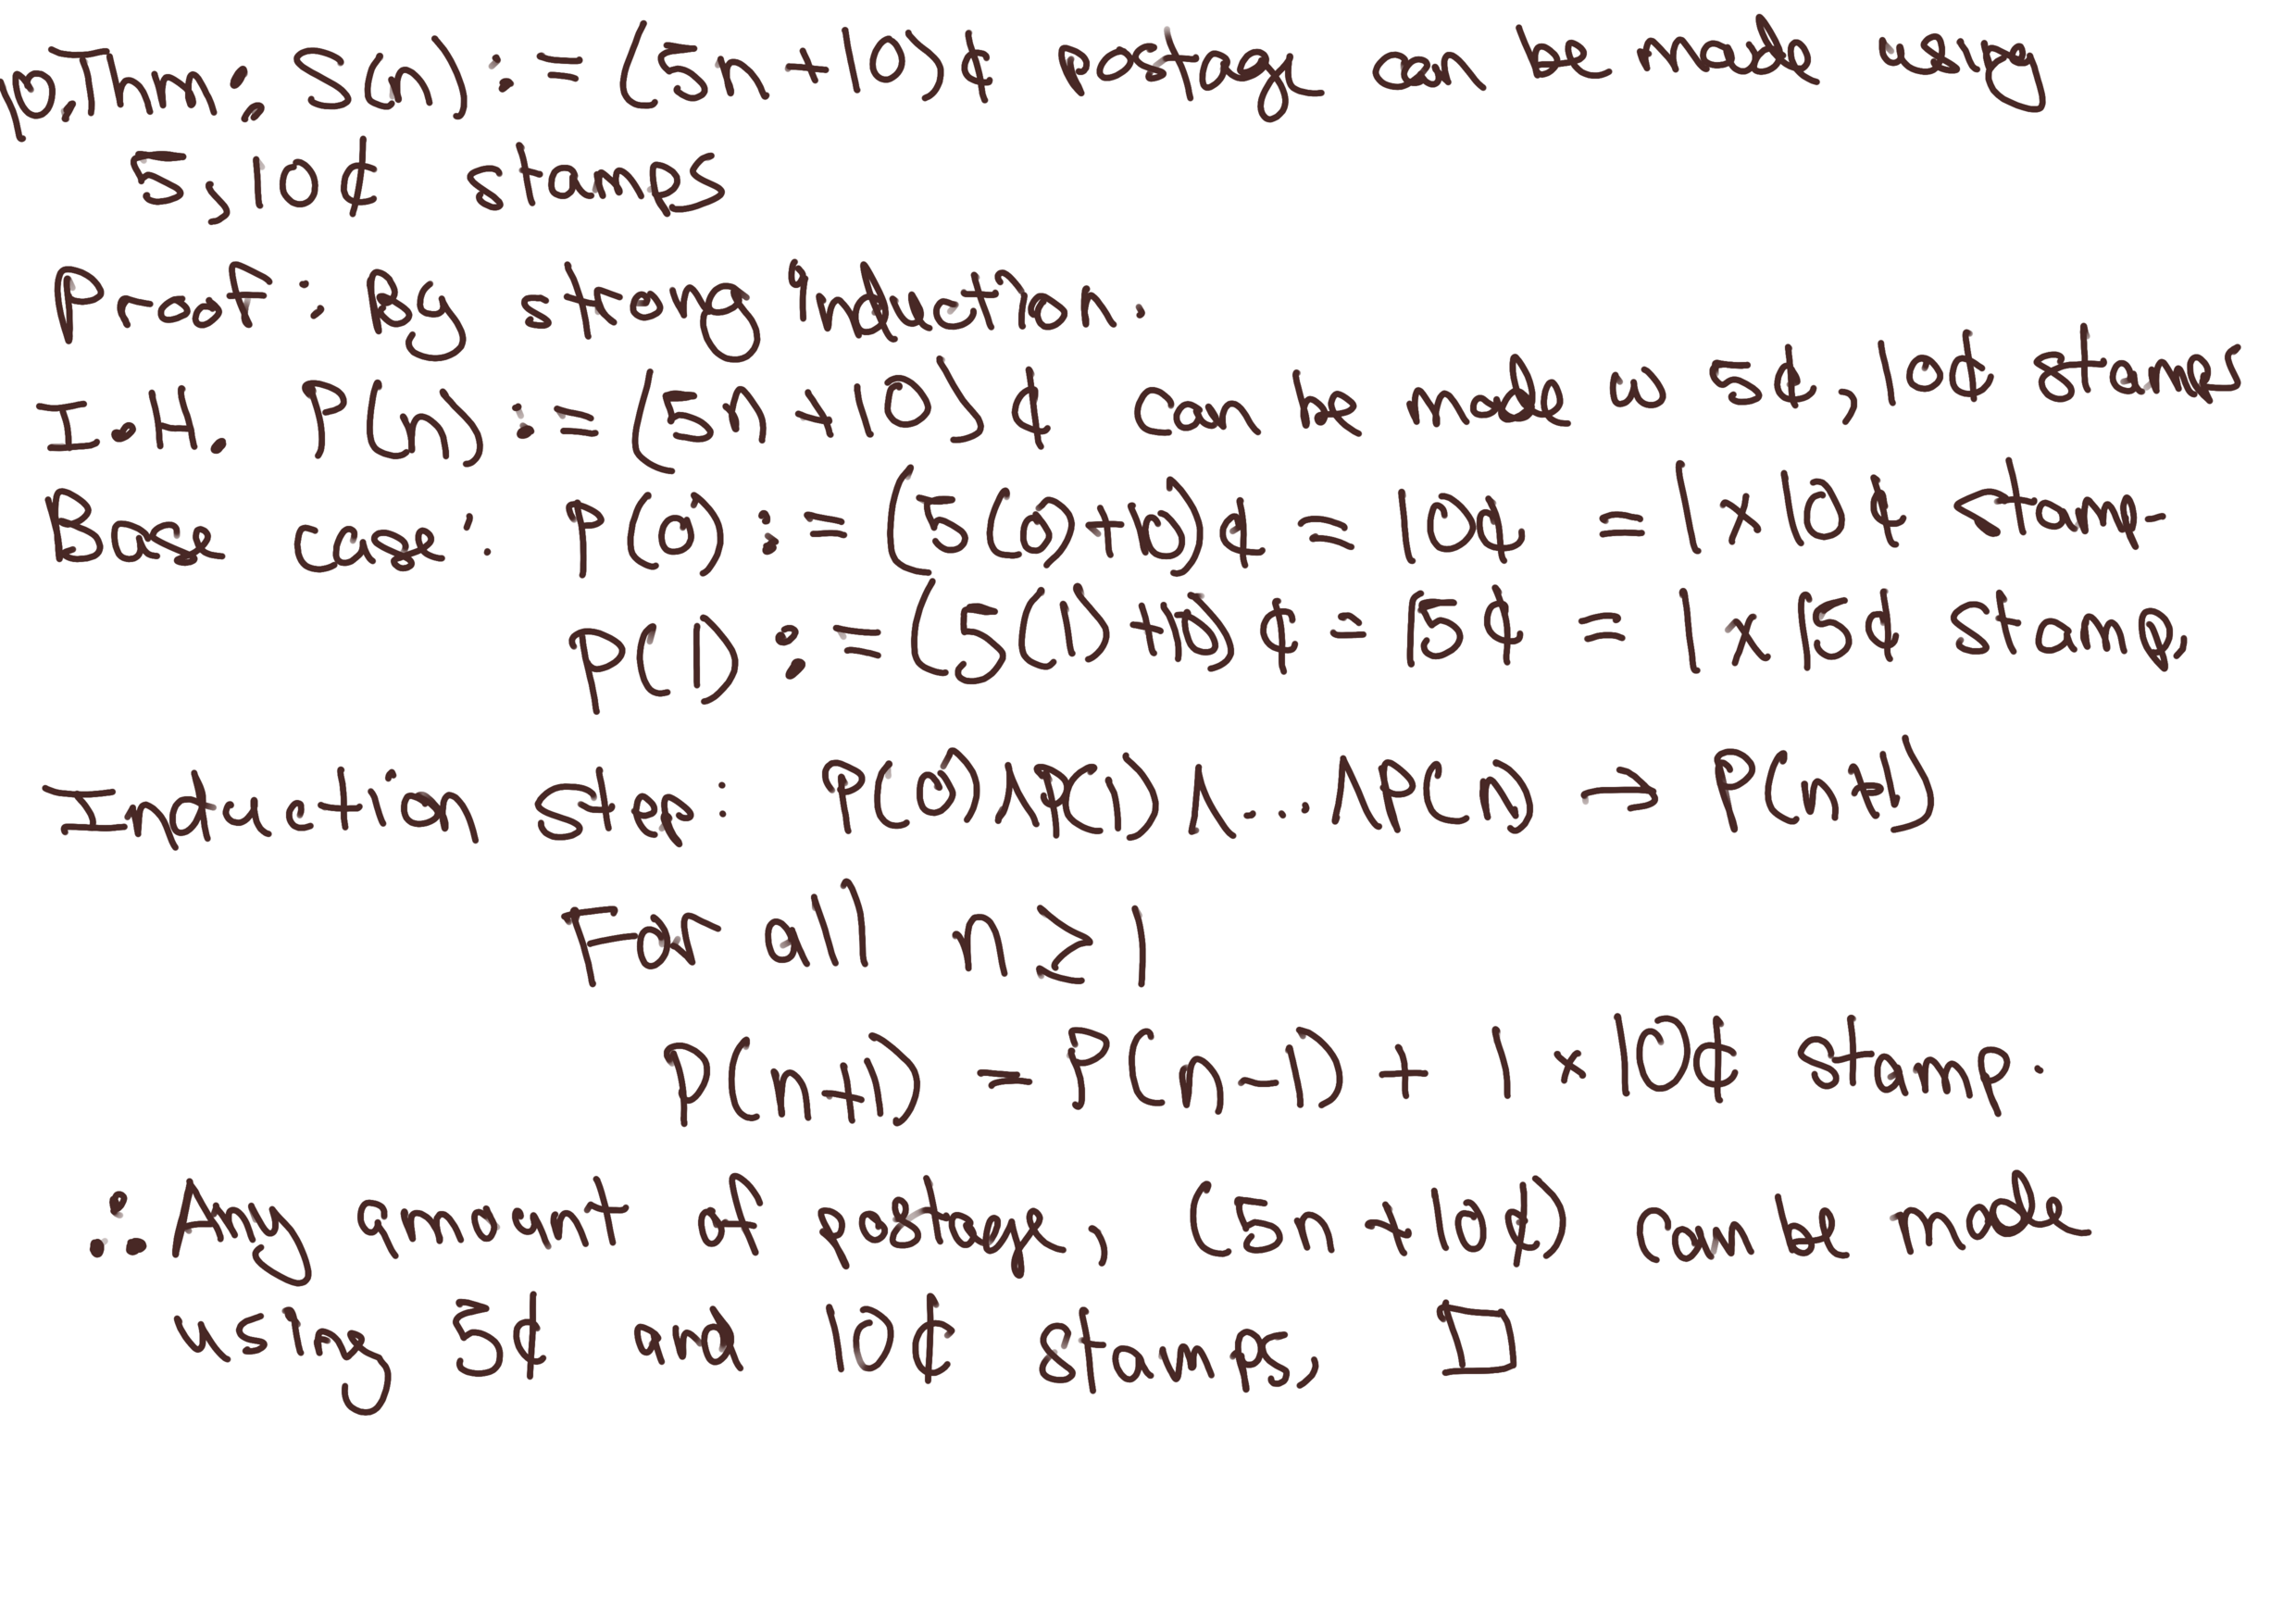 10. Thm: S(n) := (5n + 10)¢ postage can be made using
5, 10¢ stamps
Proof: By strong induction.
I.H. P(n) := (5n + 10)¢ can be made w 5¢, 10¢ stamps
Base case: P(0) := (5(0)+10)¢ = 10¢ = 1 x 10¢ stamp.
P(1) := (5(1)+10)¢ = 15¢ = 1 x 15¢ stamp.
Induction step: P(0) ∧ P(1) ∧ ... ∧ P(n) → P(n+1)
For all n ≥ 1
P(n+1) = P(n-1) + 1 x 10¢ stamp.
∴ Any amount of postage, (5n + 10¢) can be made
using 5¢ and 10¢ stamps, □